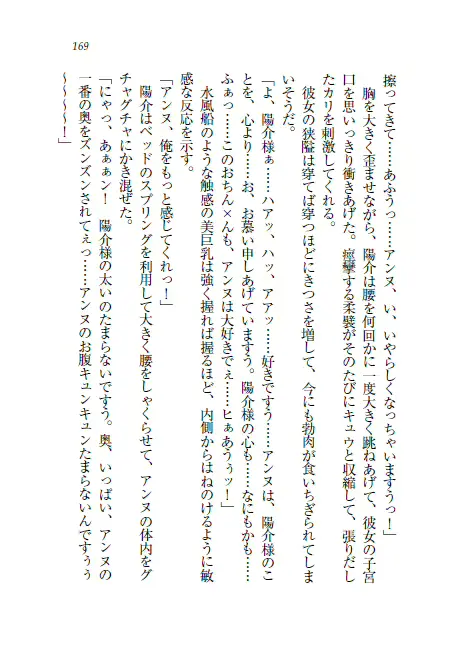 169
擦ってきて……あふうっ……アンヌ、い、いやらしくなっちゃいますうっ！」
胸を大きく歪ませながら、陽介は腰を何回かに一度大きく跳ねあげて、彼女の子宮
口を思いっきり衝きあげた。痙攣する柔襞がそのたびにキュウと収縮して、張りだし
たカリを刺激してくれる。
彼女の狭隘は穿てば穿つほどにきつさを増して、今にも勃肉が食いちぎられてしま
いそうだ。
「よ、陽介様ぁ……ハアッ、ハッ、アアッ……好きですう……アンヌは、陽介様のこ
とを、心より……お、お慕い申しあげています。陽介様の心も……なにもかも……
ふぁっ……このおちん×んも、アンヌは大好きでぇ……ヒぁあうぅッ！」
水風船のような触感の美巨乳は強く握れば握るほど、内側からはねのけるように敏
感な反応を示す。
「アンヌ、俺をもっと感じてくれっ！」
陽介はベッドのスプリングを利用して大きく腰をしゃくらせて、アンヌの体内をグ
チャグチャにかき混ぜた。
「にゃっ、あぁぁン！　陽介様の太いのたまらないですう。奥、いっぱい、アンヌの
一番の奥をズンズンされてぇっ……アンヌのお腹キュンキュンたまらないんですぅぅ
～～～～！」